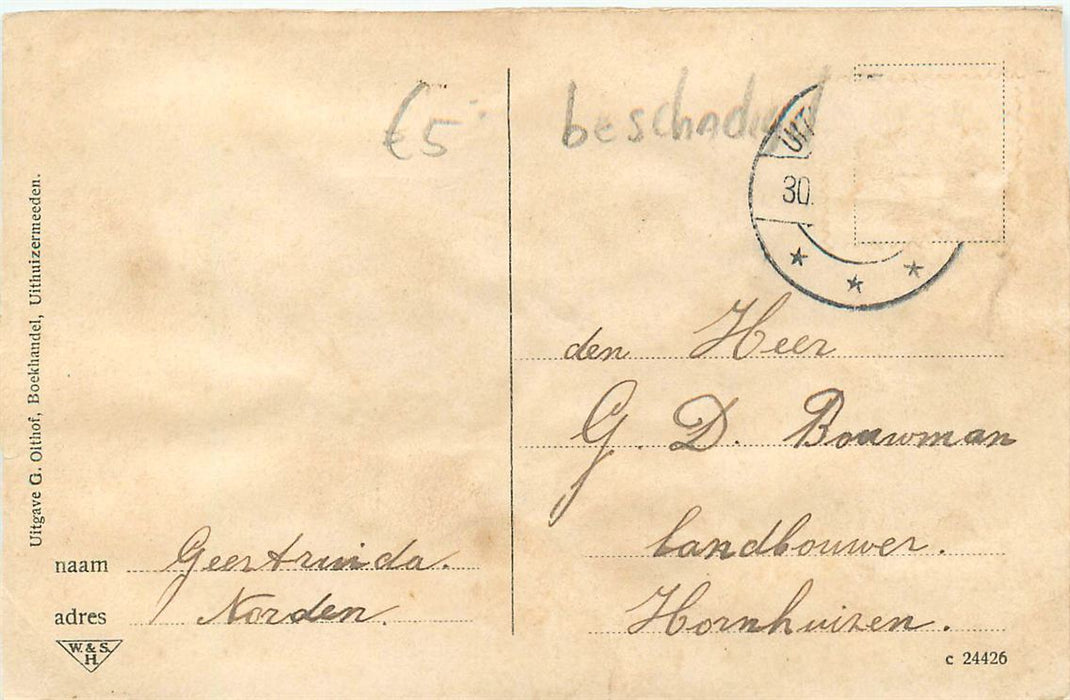 €5
beschadigd
UIT
30.
Uitgave G. Olthof, Boekhandel, Uithuizermeeden.
den Heer
G. D. Bouwman
landbouwer.
Hornhuizen.
naam Geertruida.
adres Norden.
W. & S.
H
c 24426